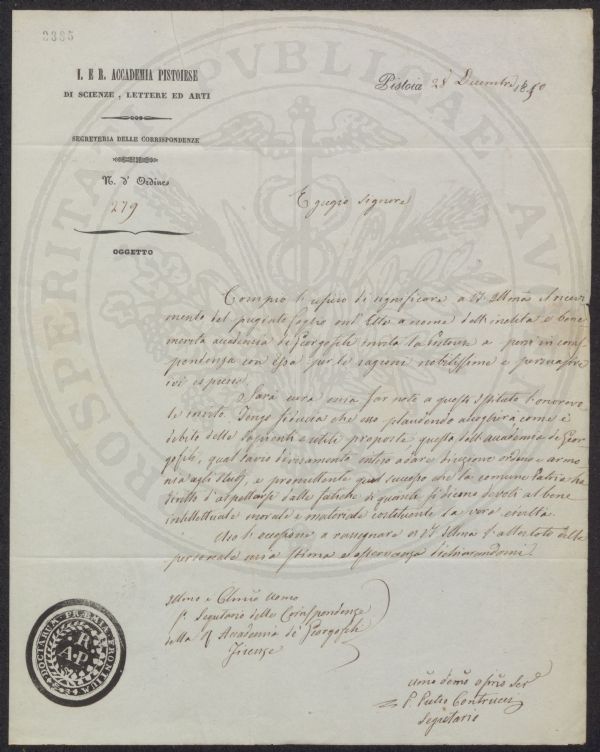 2385
I. E R. ACCADEMIA PISTOIESE
DI SCIENZE, LETTERE ED ARTI
SEGRETERIA DELLE CORRISPONDENZE
N. d'Ordine
279
OGGETTO
Pistoia 28 Dicembre 1850
Egregio Signore
Compio l'ufficio di significare a VS. Illma il ricevi-
mento del pregiato foglio ond'Ella a nome dell'inclita e bene
merita accademia de' Georgofili invita la Pistoiese a porsi in corris
pondenza con essa per le ragioni nobilissime e persuasive
ivi espresse.
Sarà cura mia far noto a questo Istituto l'onorevo-
le invito. Tengo fiducia che esso plaudendo accoglierà come è
debito delle sapienti e utili proposte questa dell'accademia de' Geor
gofili, qual savio divisamento inteso a dare direzione ordine e armo
nia agli studj, e promettente quel successo che la comune Patria ha
diritto d'aspettarsi dalle fatiche di quanti si dicono devoti al bene
intellettuale morale e materiale costituente la vera civiltà.
Ho l'occasione a rassegnare a VS Illma l'attestato della
personale mia stima e osservanza dichiarandomi.
Illmo e Chmo Uomo
Sigr Segretario delle Corrispondenze
della R Accademia de' Georgofili
Firenze
P. Pietro Contrucci
Segretario
SOCIETATUM PRAEMIA FRONTIUM
R
A.P
PUBLICAE
PROSPERITATIS AU